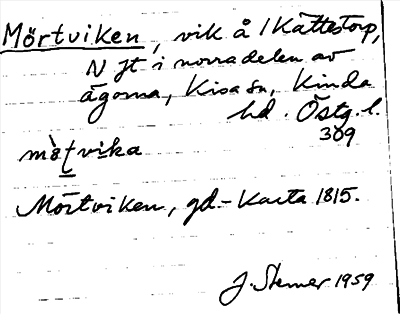 Mörtviken, vik å 1 Kättestorp,
N jt i norra delen av
ägorna, Kisa sn, Kinda
hd. Östg. l.
309
mòtvika
Mörtviken, gd-karta 1815.
J. Sterner 1959